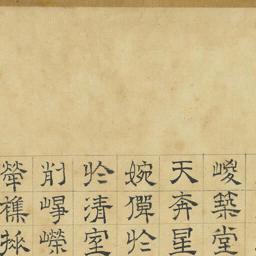 嵕築堂
天奔星
婉僤於
於清室
削崢嶸
犖襍